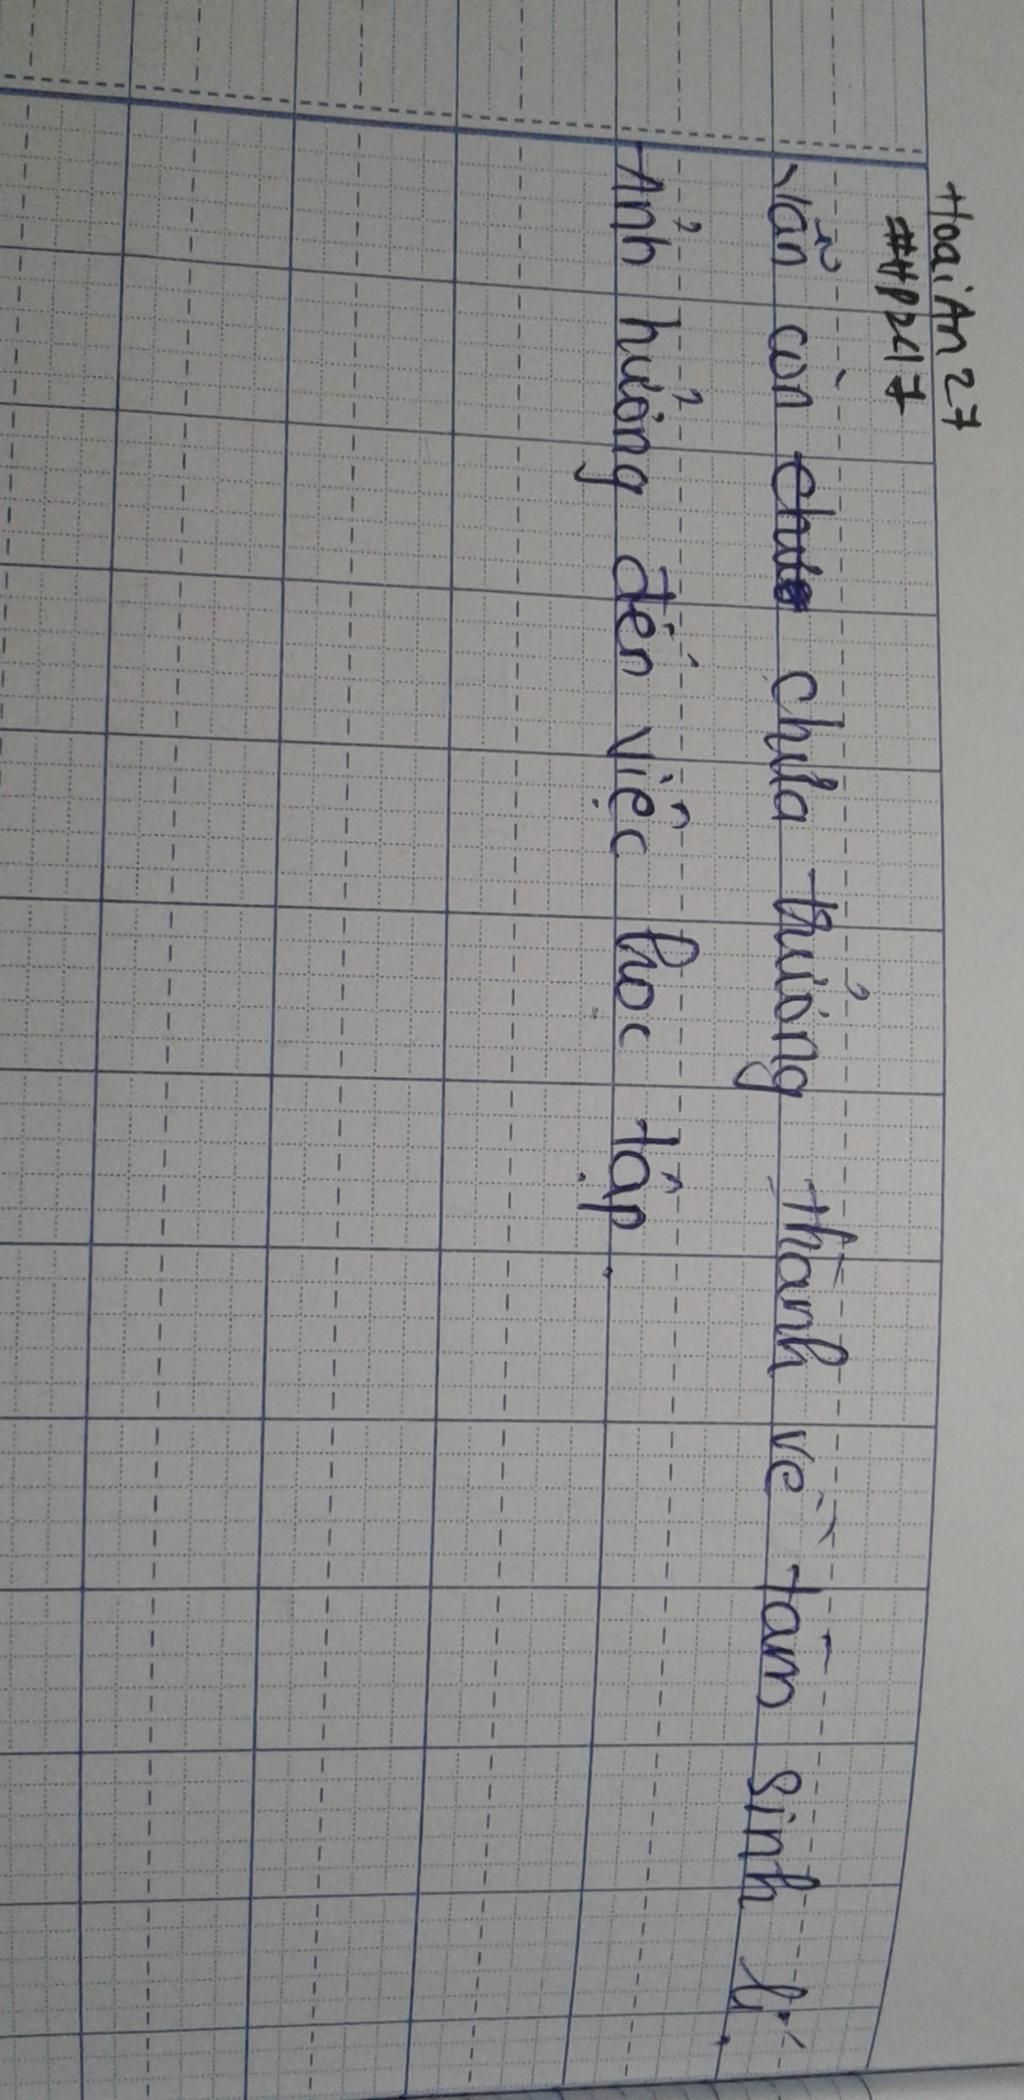 HoaiAn27
##Pp2k17
Vẫn còn chưa trưởng thành về tâm sinh lí.
Ảnh hưởng đến việc học tập.